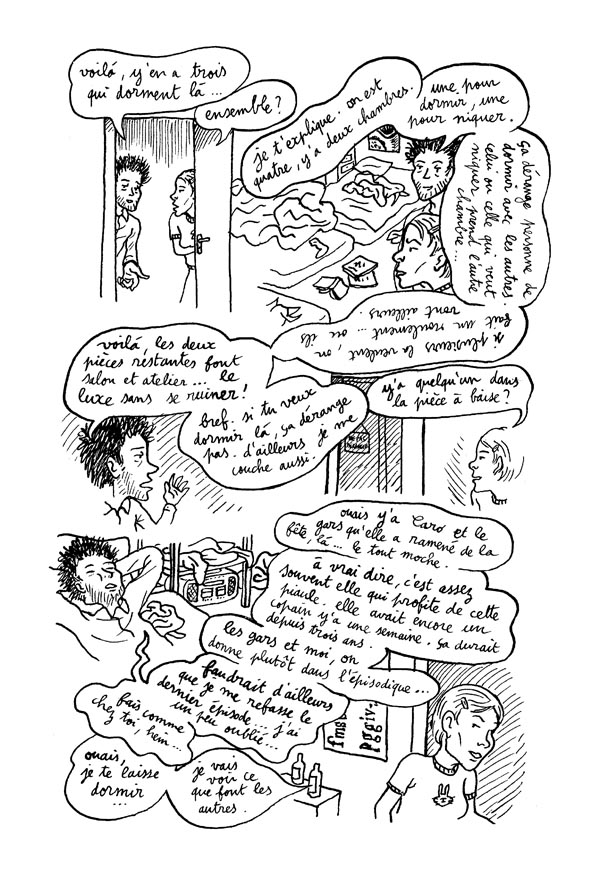 voilà, y'en a trois
qui dorment là...
ensemble?
je t'explique. on est
quatre, y'a deux chambres.
une pour
dormir, une
pour niquer.
ça dérange personne de
dormir avec les autres.
celui ou celle qui veut
niquer prend l'autre
chambre...
si plusieurs la veulent, on
fait un roulement... ou ils
vont ailleurs.
voilà, les deux
pièces restantes font
salon et atelier... le
luxe sans se ruiner!
bref. si tu veux
dormir là, ça dérange
pas. d'ailleurs je me
couche aussi.
y'a quelqu'un dans
la pièce à baise?
ouais y'a Caro et le
gars qu'elle a ramené de la
fête, là... le tout moche.
à vrai dire, c'est assez
souvent elle qui profite de cette
piaule. elle avait encore un
copain y'a une semaine. ça durait
depuis trois ans.
les gars et moi, on
donne plutôt dans l'épisodique...
faudrait d'ailleurs
que je me repasse le
dernier épisode... j'ai
un peu oublié...
fais comme
chez toi, hein...
ouais,
je te laisse
dormir
...
je vais
voir ce
que font les
autres.